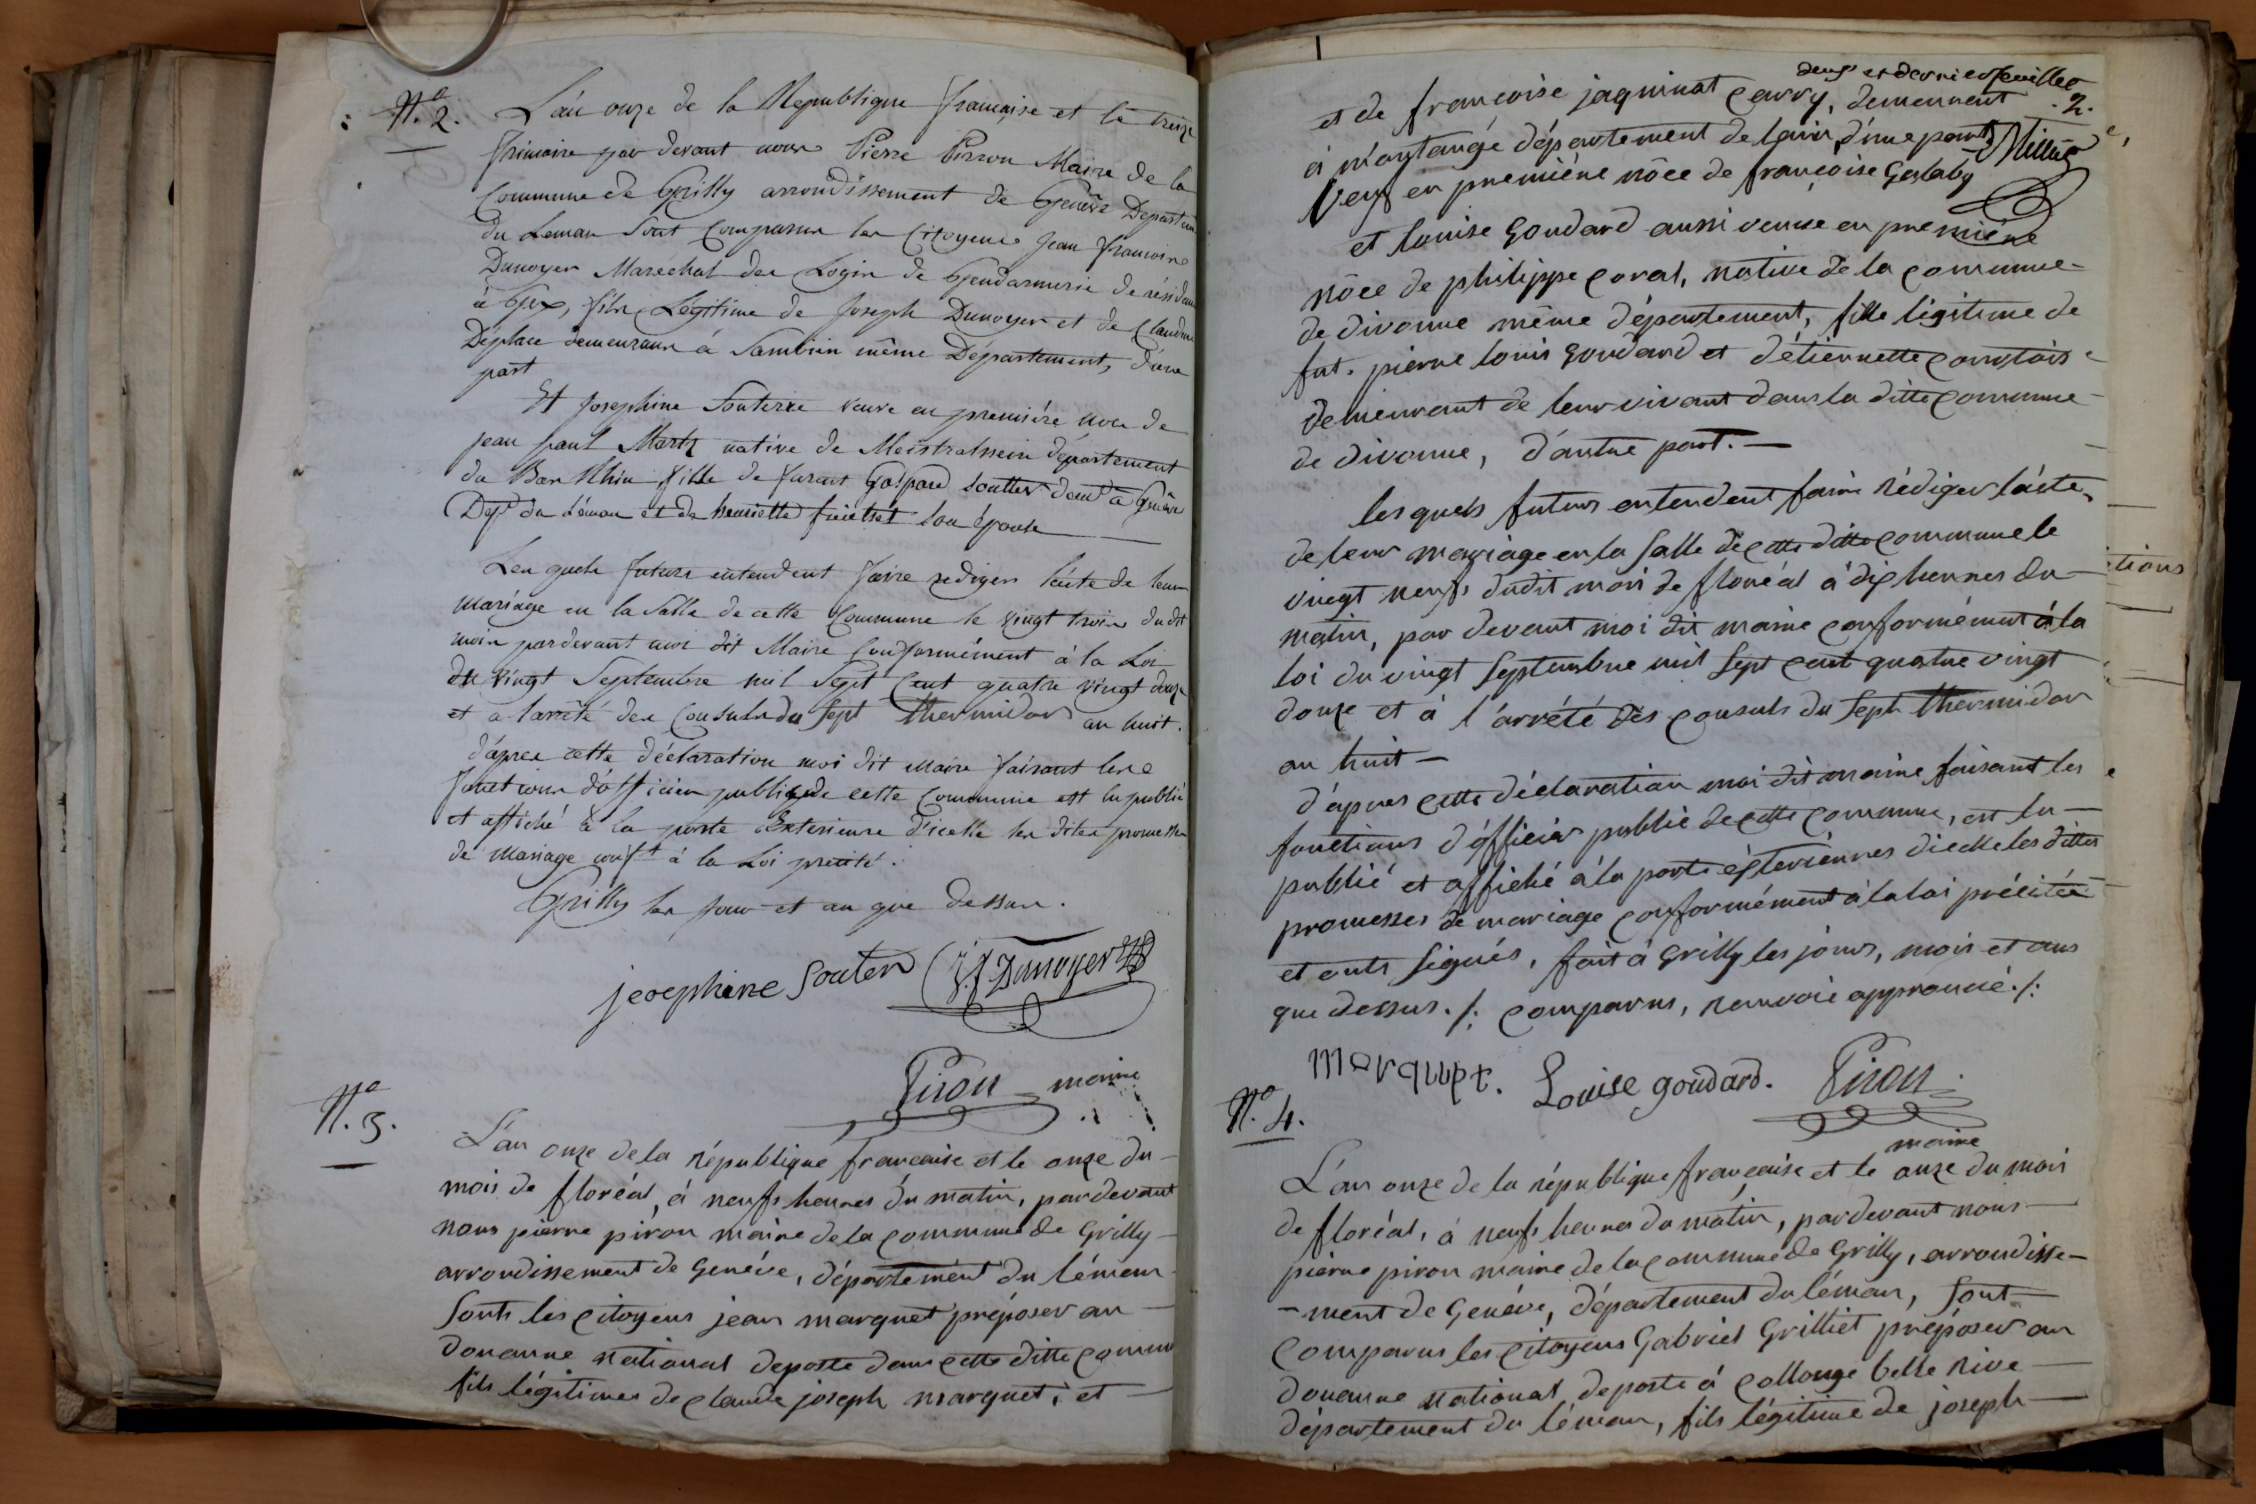 N.o 2.
L'an onze de la Republique française et le treize
frimaire par devant nous Pierre Pirron Maire de la
Commune de Grilly arrondissement de Genève Departem
du Leman Sont Comparu les Citoyens Jean françois
Dunoyer Maréchal des Logis de Gendarmerie de résidance
à Gex, fils Légitime de Joseph Dunoyer et de Claudine
Déplace demeurans à Samoin même Département, d'une
part
Et Josephine Souterre veuve en première noce de
jean paul Martz native de Meistratzein département
du Bas Rhin fille de furent Gaspard soutter demt à Genêve
Dept du Léman et de henriette son épouse
Les quels futurs entendent faire rediger l'acte de leur
mariage en la Salle de cette Commune le vingt trois dudit
mois pardevant moi dit Maire Conformément à la Loi
du vingt Septembre mil Sept Cent quatre vingt douze
et a larrêté des Consuls du Sept thermidor an huit.
d'après cette déclaration moi dit maire faisant les
fonctions d'officier public de cette Commune est lu publié
et affiché à la porte Exterieure d'icelle les dites promesses
de mariage conft à la Loi précité.
Grilly les jour et an que dessus.
josephine Souter J. f Dunoyer
Piron maire
N.o 3.
L'an onze de la république francaise et le onze du
mois de floréal, à neufs heures du matin, pardevant
nous pierre piron maire de la commune de Grilly
arrondissement de Genéve, département du léman
Sonts les citoyens jean marquet préposer au
douanne national deposte dans cette ditte commu
fils légitimes de claude joseph marquet, et
deuxs et dernier feuillet
.2.
et de francoise jaquinot carry, demeurent
à martangé département de lain, d'une part
Veuf en premiène nôce de françoise Gaslaby
et louise Goudard aussi veuve en premiène
nôce de philippe coral, native de la commune
de divonne même département, fille légitime de
fut. pierre louis Goudard et d'étiennette comtois
demeurant de leur vivant dans la ditte commune
de divonne, d'autre part.
les quels futurs entendent faire rédiger l'acte
de leur mariage en la salle de cette ditte commune le
vingt neufs dudit mois de floréal à dix heures du
matin, par devant moi dit maire conformément à la
loi du vingt septembre mil sept cent quatre vingt
douze et à l'arrété dés consuls du sept thermidor
an huit
d'apres cette déclaration moi dit maire faisant les
fonctions d'officier public de cette commune, est lu
publié et affiché à la porte éxteriennes dicelle les dittes
promesses de mariage conformément à la loi précitée
et onts signés, fait à Grilly les jours, mois et ans
que dessus. /. comparus, renvoie approuvé. /.
marquet. Louise goudard. Piron
maire
N.o 4.
L'an onze de la république francaise et le onze du mois
de floréal, à neufs heures du matin, pardevant nous
pierre piron maire de la commune de Grilly, arrondisse-
-ment de Genéve, département du léman, sont
comparus les citoyens Gabriel Grilliet préposer au
douanne national, deposte à collonge belle rive
département du léman, fils légitime de joseph
tions